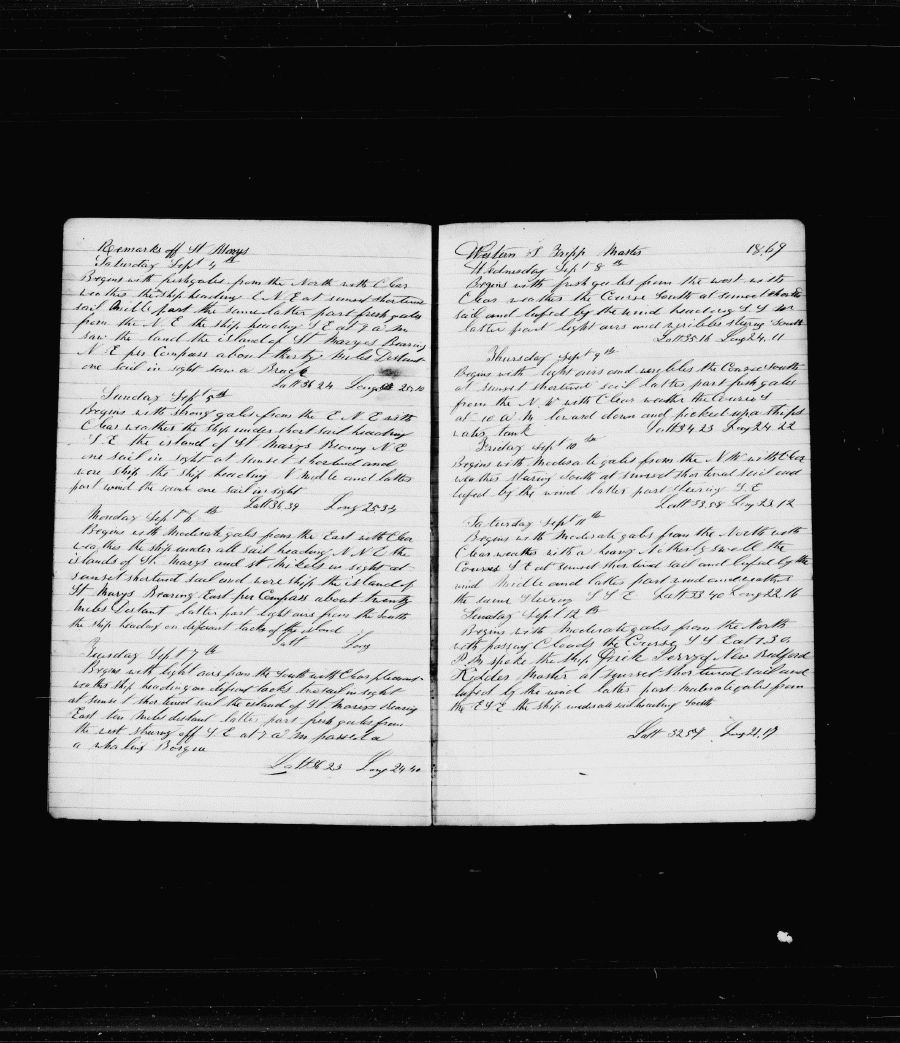 Remarks off St Marys
Saturday Sept 4th
Begins with fresh gales from the North with Clear
weather the ship heading E N E at sunset shortened
sail Middle part the same latter part fresh gales
from the N E the ship heading S E at 7 a m
saw the land the island of St Marys Bearing
N E per Compass about thirty Miles Distant
one sail in sight saw a
Latt 36 24 Long 25.10
Sunday Sept 5th
Begins with strong gales from the E N E with
Clear weather the ship under short sail heading
S E the island of St Marys Bearing N E
one sail in sight at sunset shortend and
wore ship the ship heading N Middle and latter
part wind the same one sail in sight
Latt 36 39 Long 25 34
Monday Sept 6th
Begins with Moderate gales from the East with Clear
weather the ship under all sail heading N N E the
islands of St. Marys and st Mickels in sight at
sunset shortned sail and wore ship the island of
St Marys Bearing East per Compass about twenty
Miles Distant latter part light airs from the South
the ship heading on different tacks off the island
Latt Long
Tuesday Sept 7th
Begins with light airs from the South with Clear pleasant
weather ship heading on different tacks two sail in sight
at sunset shortened sail the island of St Marys Bearing
East ten Miles distant latter part fresh gales from
the west stearing off S E at 7 a m passed a
a whaling
Latt 36 23 Long 24.40
Western Master 1869
Wednesday Sept 8th
Begins with fresh gales from the west with
Clear weather the Course South at sunset shortned
sail and lufed by the wind heading
latter part light airs and stering South
Latt 35.16 Long 24.11
Thursday Sept 9th
Begins with light airs and the Course South
at sunset shortned sail latter part fresh gales
from the N W with Clear weather the Course S
at 10 a m lowerd down and picked up a ships
water tank Latt 34 23 Long 24 22
Friday Sept 10th
Begins with Moderate gales from the N W with Clear
weather stering South at sunset shortened sail and
lufed by the wind latter part stering S E
Latt 33.58 Long 23.12
Saturday Sept 11th
Begins with Moderate gales from the North with
Clear weather with a heavy Notherly swell the
Course S E at sunset shortned sail and lufed by the
wind Middle and latter part wind and weather
the same stering S S E Latt 33 40 Long 22.16
Sunday Sept 12th
Begins with Moderate gales from the North
with passing Clouds the Course S S E at 1.30
P M spoke the ship of New Bedford
Master at sunset shortened sail and
lufed by the wind latter part Moderate gales from
the E S E the ship under sail heading South
Latt 32 54 Long 21.17